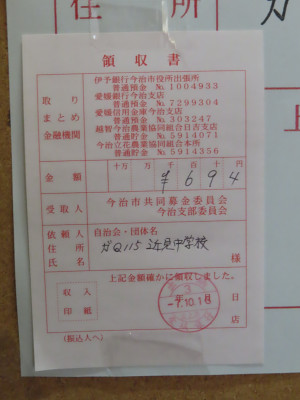 住 所
領収書
取りまとめ金融機関
伊予銀行今治市役所出張所
普通預金 No.1004933
愛媛銀行今治支店
普通預金 No.7299304
愛媛信用金庫今治支店
普通預金 No.303247
越智今治農業協同組合日吉支店
普通貯金 No.5914071
今治立花農業協同組合本所
普通貯金 No.5914356
金額
十 万 千 百 十 円
¥694
受取人
今治市共同募金委員会
今治支部委員会
依頼人
住所
氏名
自治会・団体名
近見中学校
様
上記金額確かに領収しました。
収入
印紙
-7.10.18
日
店
(振込人へ)
上